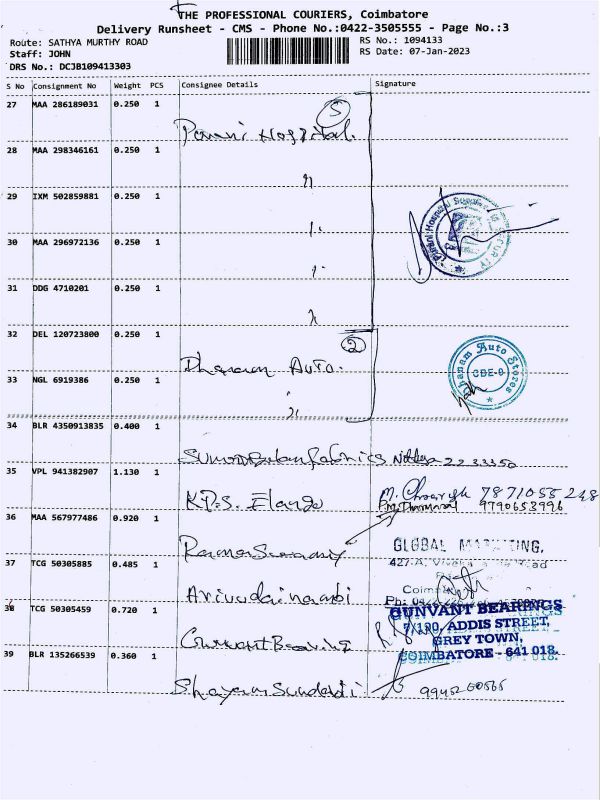 THE PROFESSIONAL COURIERS, Coimbatore
Delivery Runsheet - CMS - Phone No.:0422-3505555 - Page No.:3
Route: SATHYA MURTHY ROAD
Staff: JOHN
DRS No.: DCJB109413303
RS No.: 1094133
RS Date: 07-Jan-2023
S No Consignment No Weight PCS Consignee Details Signature
27 MAA 286189031 0.250 1 5
Parani Hospital.
28 MAA 298346161 0.250 1
29 IXM 502859881 0.250 1
30 MAA 296972136 0.250 1
31 DDG 4710201 0.250 1
Parani Hospital
SECURITY
32 DEL 120723800 0.250 1 2
Dhanam Auto.
33 NGL 6919386 0.250 1
Dhanam Auto Stores
CBE-9
34 BLR 4350913835 0.400 1
fabrics
35 VPL 941382907 1.130 1
K.P.S. Elango
7871055248
9790653996
36 MAA 567977486 0.920 1
Ramaswamy
GLOBAL MARKETING,
427-A,
37 TCG 50305885 0.485 1
Arivudainambi
Ph:
38 TCG 50305459 0.720 1
Gunvant Bearing
GUNVANT BEARINGS
7/190, ADDIS STREET,
GREY TOWN,
COIMBATORE - 641 018.
39 BLR 135266539 0.360 1
Shayam Sundar